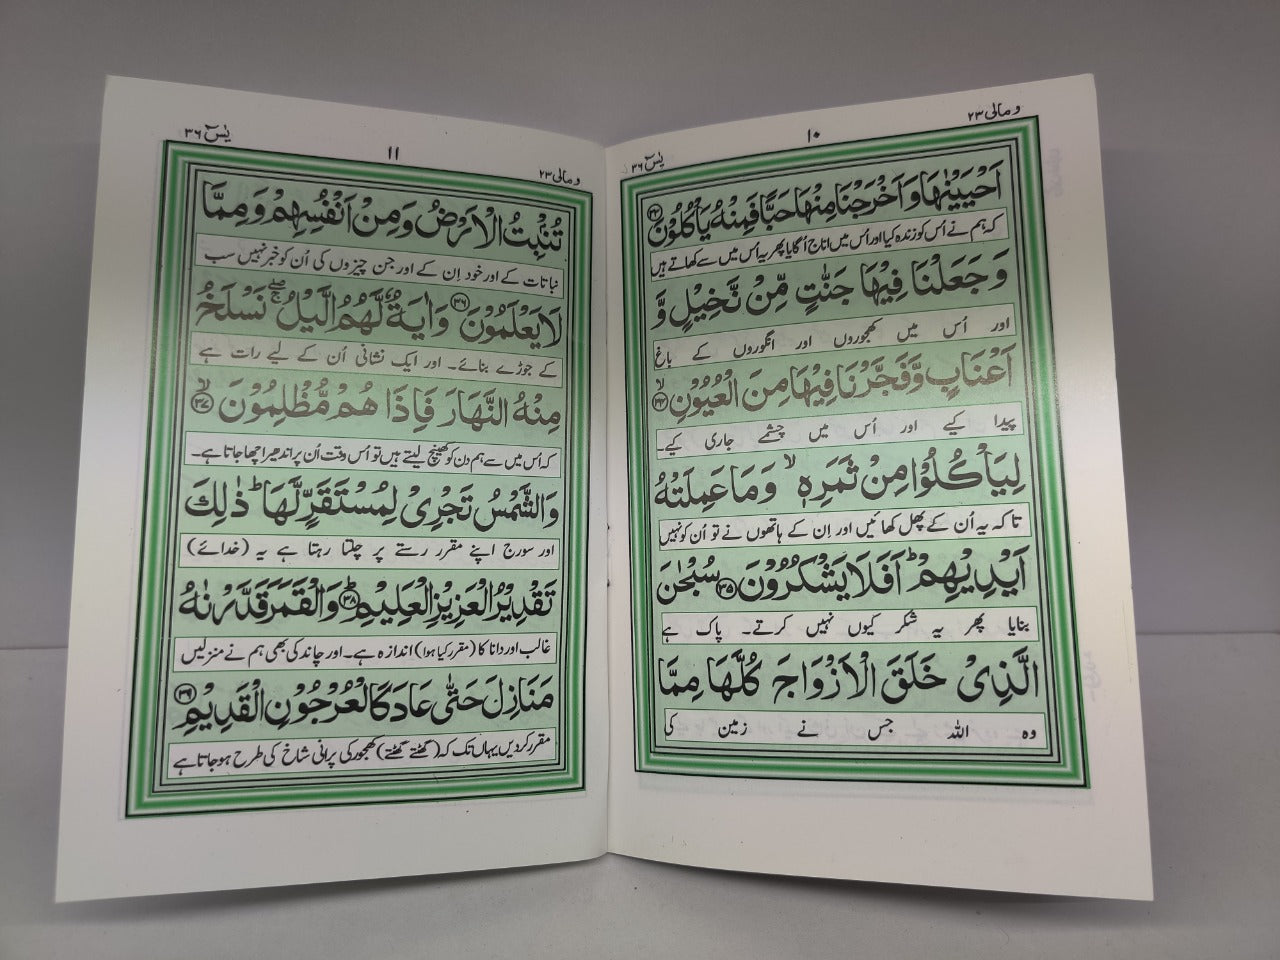 ومالی ۲۳
۱۰
یٰسٓ ۳۶
اَحْیَیْنٰهَا وَ اَخْرَجْنَا مِنْهَا حَبًّا فَمِنْهُ یَاْكُلُوْنَ ﴿۳۳﴾
کہ ہم نے اُس کو زندہ کیا اور اُس میں اناج اُگایا پھر یہ اُس میں سے کھاتے ہیں
وَ جَعَلْنَا فِیْهَا جَنّٰتٍ مِّنْ نَّخِیْلٍ وَّ
اور اُس میں کھجوروں اور انگوروں کے باغ
اَعْنَابٍ وَّ فَجَّرْنَا فِیْهَا مِنَ الْعُیُوْنِ ﴿۳۴﴾ۙ
پیدا کیے اور اُس میں چشمے جاری کیے۔
لِیَاْكُلُوْا مِنْ ثَمَرِهٖۙ وَ مَا عَمِلَتْهُ
تاکہ یہ اُن کے پھل کھائیں اور اِن کے ہاتھوں نے تو اُن کو نہیں
اَیْدِیْهِمْؕ اَفَلَا یَشْكُرُوْنَ ﴿۳۵﴾ سُبْحٰنَ
بنایا پھر یہ شکر کیوں نہیں کرتے۔ پاک ہے
الَّذِیْ خَلَقَ الْاَزْوَاجَ كُلَّهَا مِمَّا
وہ اللہ جس نے زمین کی
ومالی ۲۳
۱۱
یٰسٓ ۳۶
تُنْۢبِتُ الْاَرْضُ وَ مِنْ اَنْفُسِهِمْ وَ مِمَّا
نباتات کے اور خود اِن کے اور جن چیزوں کی اُن کو خبر نہیں سب
لَا یَعْلَمُوْنَ ﴿۳۶﴾ وَ اٰیَةٌ لَّهُمُ الَّیْلُ ۚۖ نَسْلَخُ
کے جوڑے بنائے۔ اور ایک نشانی اُن کے لیے رات ہے
مِنْهُ النَّهَارَ فَاِذَا هُمْ مُّظْلِمُوْنَ ﴿۳۷﴾ۙ
کہ اُس میں سے ہم دن کو کھینچ لیتے ہیں تو اُس وقت اُن پر اندھیرا چھا جاتا ہے۔
وَ الشَّمْسُ تَجْرِیْ لِمُسْتَقَرٍّ لَّهَاؕ ذٰلِكَ
اور سورج اپنے مقرر رستے پر چلتا رہتا ہے یہ (خدائے)
تَقْدِیْرُ الْعَزِیْزِ الْعَلِیْمِ ﴿۳۸﴾ؕ وَ الْقَمَرَ قَدَّرْنٰهُ
غالب اور دانا کا (مقرر کیا ہوا) اندازہ ہے۔ اور چاند کی بھی ہم نے منزلیں
مَنَازِلَ حَتّٰی عَادَ كَالْعُرْجُوْنِ الْقَدِیْمِ ﴿۳۹﴾
مقرر کردیں یہاں تک کہ (گھٹتے گھٹتے) کھجور کی پرانی شاخ کی طرح ہو جاتا ہے